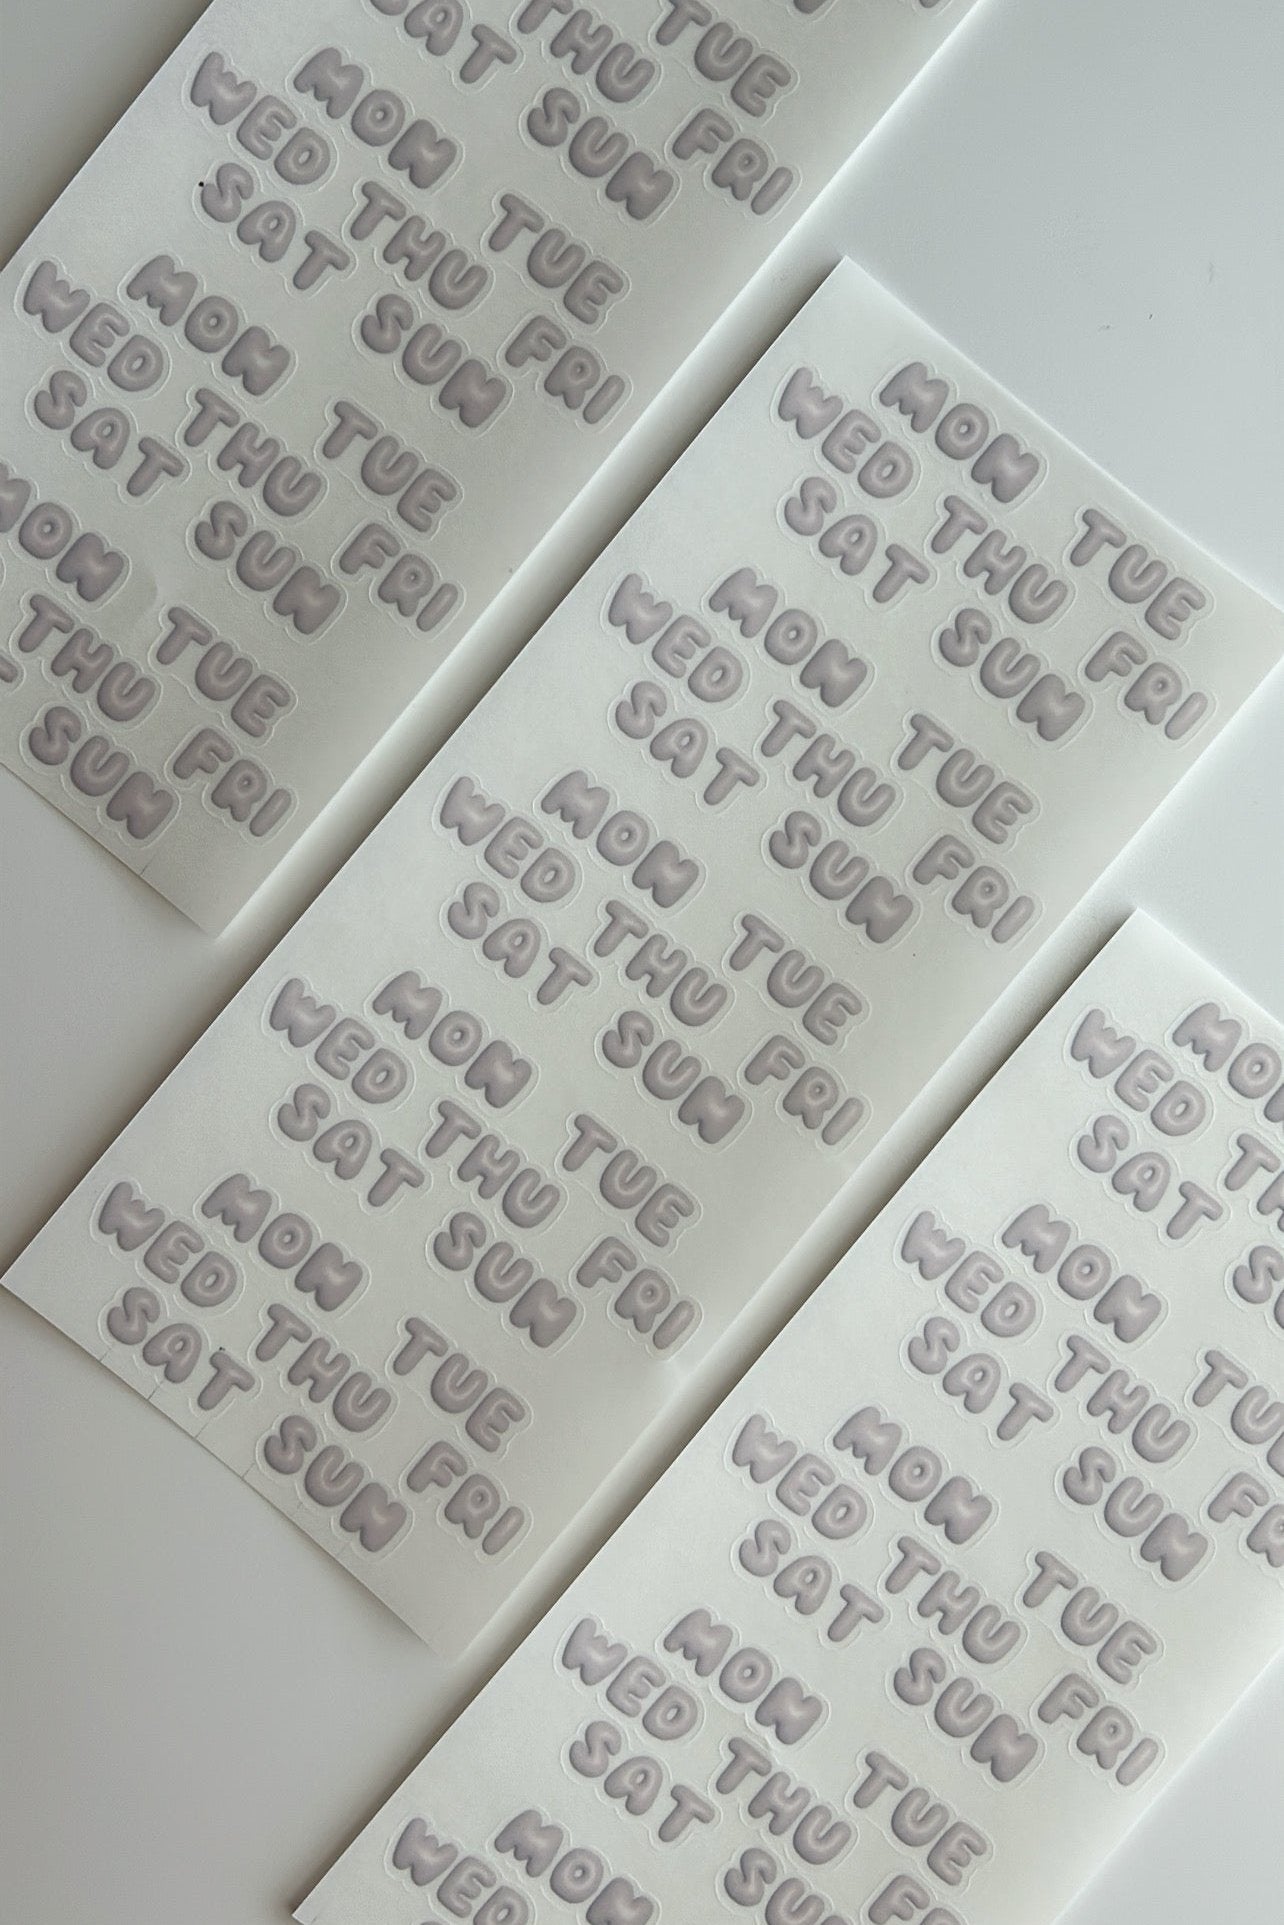 TUE
THU FRI
SAT SUN
MON TUE
WED THU FRI
SAT SUN
MON TUE
WED THU FRI
SAT SUN
MON TUE
THU FRI
SUN
MON TUE
WED THU FRI
SAT SUN
MON TUE
WED THU FRI
SAT SUN
MON TUE
WED THU FRI
SAT SUN
MON TUE
WED THU FRI
SAT SUN
MON TUE
WED THU FRI
SAT SUN
MO
WED TH
SAT S
MON TU
WED THU FR
SAT SUN
MON TUE
WED THU FRI
SAT SUN
MON TUE
WED THU F
SAT SU
MON
WED